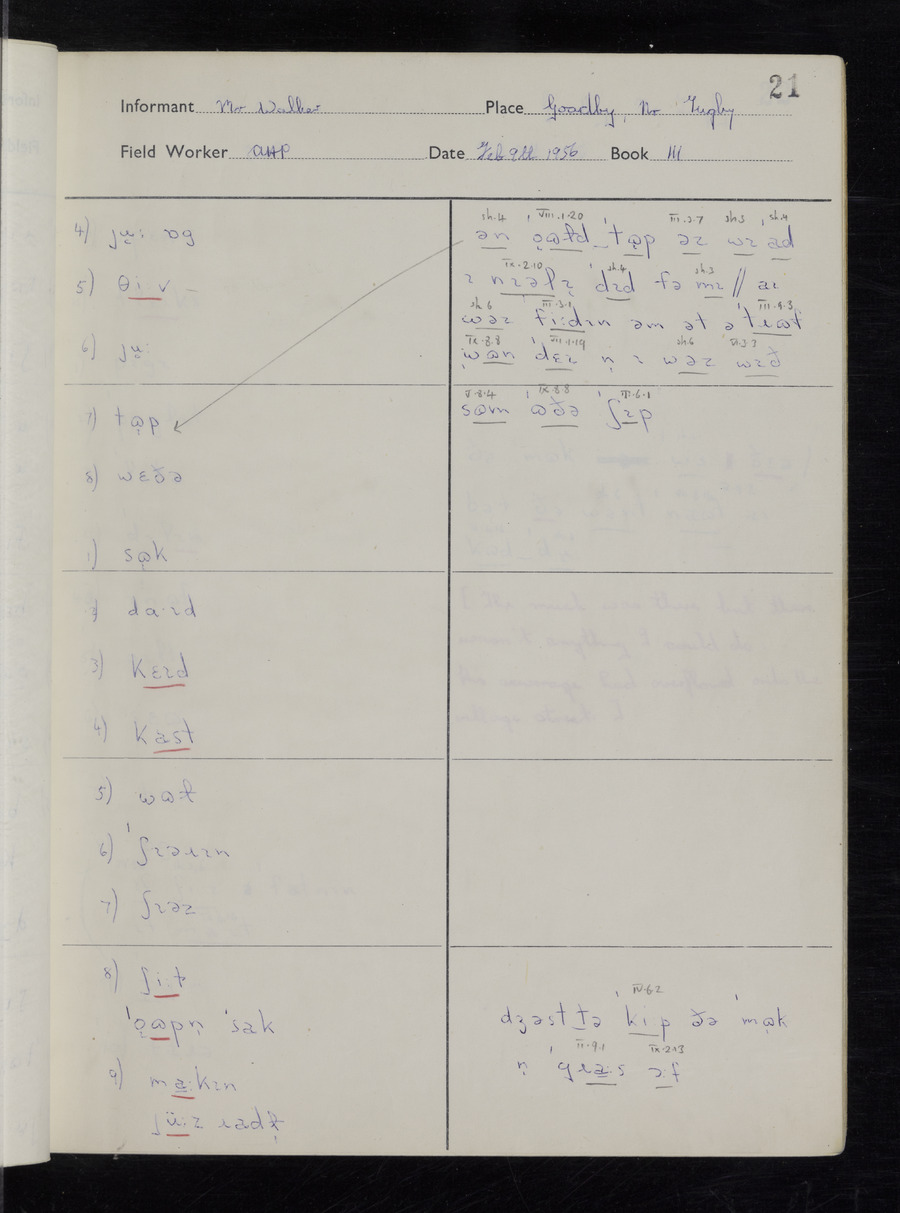 21
Informant Mr Walker Place Goadby, Nr Tugby
Field Worker AHP Date Feb 9th 1956 Book III
4) ju̞: ɒg
5) θi:v –
6) ju̞:
7) tɷ̞p
8) wɛðə
1) sɷ̞k
2) da:ɪd
3) kɛɪd
4) kast
5) wɷɫ
6) ˈʃɪəɹɪn
7) ʃɪəz
8) ʃi:t
ˈo̞ɷpn̩ ˈsak
9) ma:kɪn
jü:z ɹadɫ̩
sh.4 VIII.1.20 III.3.7 sh.3 sh.4
ən o̞ɷɫd tɷ̞p əz wɪ ad
IX.2.10 sh.4 sh.3
ɪ nɪəlɪ dɪd fə mɪ // aɪ
sh.6 III.3.1 III.9.3
wəz fi:dɪn əm ət ə ˈtɹɷf
IX.8.8 VII.1.19 sh.6 VI.3.2
wɷn ˈdɛɪ n̩ ɪ wəz wɪð
V.8.4 IX.8.8 III.6.1
sɷm ɷðə ʃɪp
IV.6.2
dʒəst tə ˈki:p ðə ˈmɷk
II.9.1 IX.2.13
n̩ gɹa:s ɔ:f